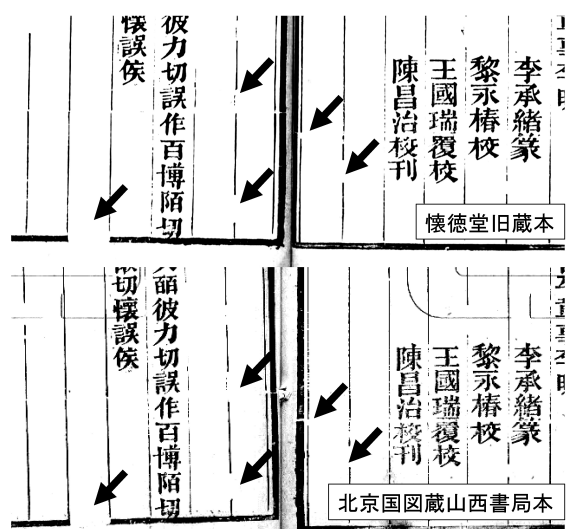 李承緒篆
黎永椿校
王國瑞覆校
陳昌治校刊
彼力切誤作百博陌切
懷誤
懐徳堂旧蔵本
董事李
李承緒篆
黎永椿校
王國瑞覆校
陳昌治校刊
皕彼力切誤作百博陌切
切懷誤
北京国図蔵山西書局本